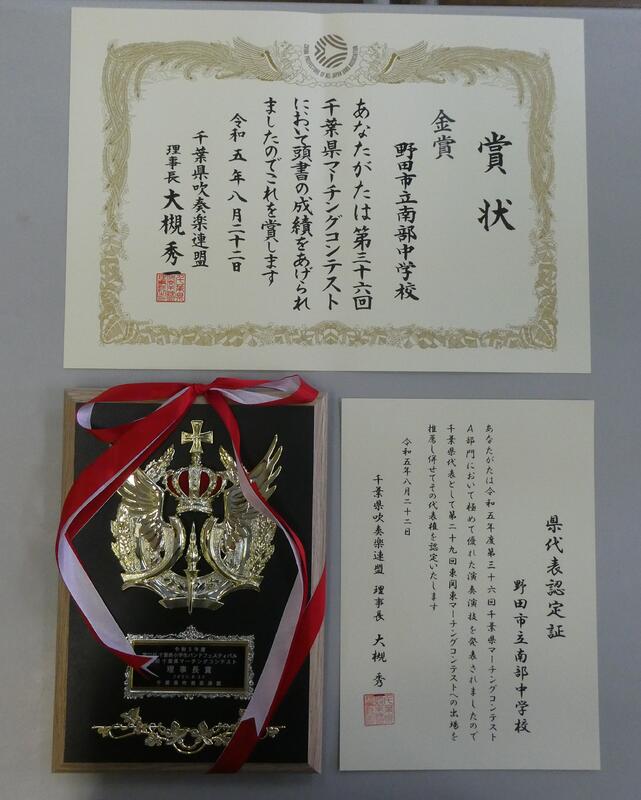 賞状
金賞
野田市立南部中学校
あなたがたは第三十六回
千葉県マーチングコンテスト
において頭書の成績をあげられ
ましたのでこれを賞します
令和五年八月二十二日
千葉県吹奏楽連盟
理事長 大槻秀一
県代表認定証
野田市立南部中学校
あなたがたは令和五年度第三十六回千葉県マーチングコンテスト
A部門において極めて優れた演奏演技を発表されましたので
千葉県代表として第二十九回東関東マーチングコンテストへの出場を
推薦し併せてその代表権を認定いたします
令和五年八月二十二日
千葉県吹奏楽連盟 理事長 大槻秀一
令和5年度
千葉県マーチングコンテスト
理事長賞
千葉県吹奏楽連盟